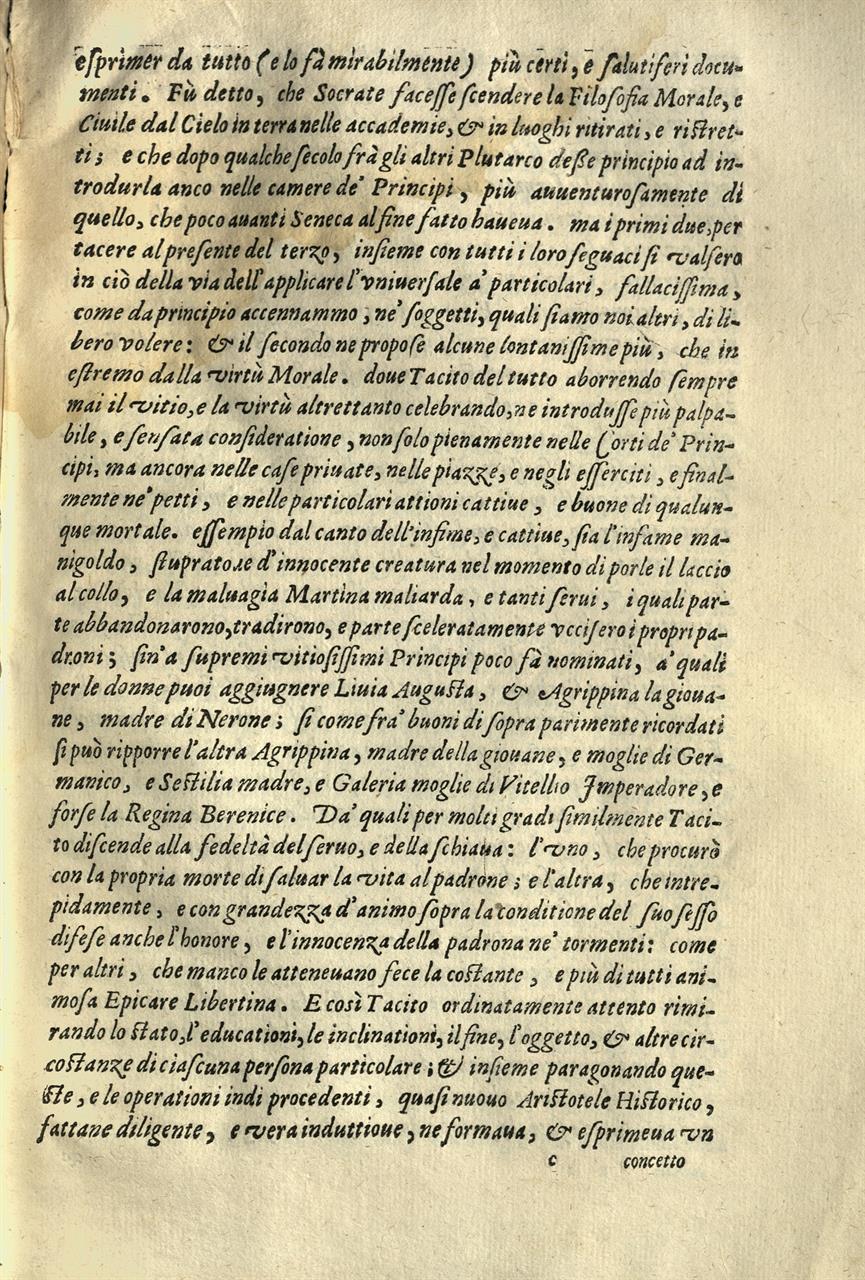 esprimer da tutto (e lo fà mirabilmente) più certi, e salutiferi docu-
menti. Fù detto, che Socrate facesse scendere la Filosofia Morale, e
Ciuile dal Cielo in terra nelle accademie, & in luoghi ritirati, e ristret-
ti; e che dopo qualche secolo frà gli altri Plutarco desse principio ad in-
trodurla anco nelle camere de' Principi, più auuenturosamente di
quello, che poco auanti Seneca al fine fatto haueua. ma i primi due, per
tacere al presente del terzo, insieme con tutti i loro seguaci si valsero
in ciò della via dell'applicare l'vniuersale a' particolari, fallacissima,
come da principio accennammo, ne' soggetti, quali siamo noi altri, di li-
bero volere: & il secondo ne propose alcune lontanissime più, che in
estremo dalla virtù Morale. doue Tacito del tutto aborrendo sempre
mai il vitio, e la virtù altrettanto celebrando, ne introdusse più palpa-
bile, e sensata consideratione, non solo pienamente nelle Corti de' Prin-
cipi, ma ancora nelle case priuate, nelle piazze, e negli esserciti, e final-
mente ne' petti, e nelle particolari attioni cattiue, e buone di qualun-
que mortale. essempio dal canto dell'infime, e cattiue, sia l'infame ma-
nigoldo, stupratore d'innocente creatura nel momento di porle il laccio
al collo, e la maluagia Martina maliarda, e tanti serui, i quali par-
te abbandonarono, tradirono, e parte sceleratamente vccisero i propri pa-
droni; sin'a supremi vitiosissimi Principi poco fà nominati, a' quali
per le donne puoi aggiugnere Liuia Augusta, & Agrippina la gioua-
ne, madre di Nerone; si come fra' buoni di sopra parimente ricordati
si può ripporre l'altra Agrippina, madre della giouane, e moglie di Ger-
manico, e Sestilia madre, e Galeria moglie di Vitellio Imperadore, e
forse la Regina Berenice. Da' quali per molti gradi similmente Taci-
to discende alla fedeltà del seruo, e della schiaua: l'vno, che procurò
con la propria morte di saluar la vita al padrone; e l'altra, che intre-
pidamente, e con grandezza d'animo sopra la conditione del suo sesso
difese anche l'honore, e l'innocenza della padrona ne' tormenti: come
per altri, che manco le atteneuano fece la costante, e più di tutti ani-
mosa Epicare Libertina. E così Tacito ordinatamente attento rimi-
rando lo stato, l'educationi, le inclinationi, il fine, l'oggetto, & altre cir-
costanze di ciascuna persona particolare; & insieme paragonando que-
ste, e le operationi indi procedenti, quasi nuouo Aristotele Historico,
fattane diligente, e vera induttioue, ne formaua, & esprimeua vn
c concetto